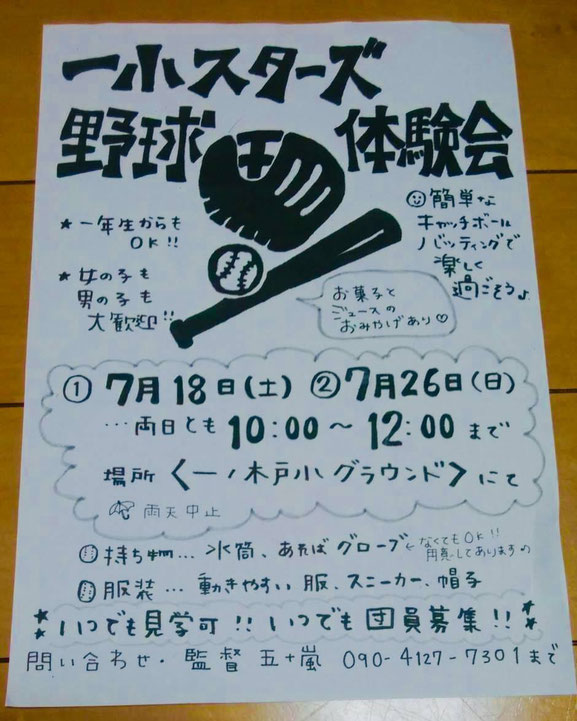 一小スターズ
野球 体験会
★ 一年生からも
OK!!
★ 女の子も
男の子も
大歓迎!!
簡単な
キャッチボール
バッティングで
楽しく
過ごそう♪
お菓子と
ジュースの
おみやげあり♡
① 7月18日(土) ② 7月26日(日)
…両日とも 10:00〜12:00まで
場所〈一ノ木戸小 グラウンド〉にて
雨天中止
持ち物… 水筒、あればグローブ ← なくてもOK!!
用意してあります
服装… 動きやすい服、スニーカー、帽子
いつでも見学可!! いつでも団員募集!!
問い合わせ・監督 五十嵐 090-4127-7301まで